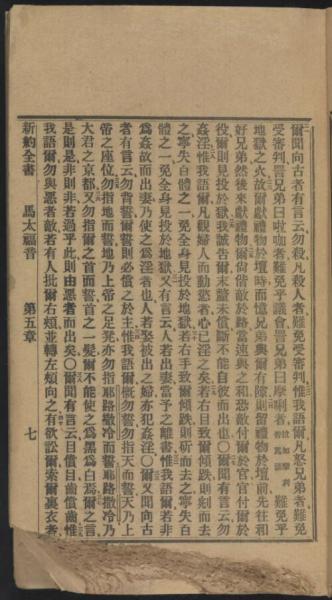 爾聞向古者有言云勿殺凡殺人者難免受審判惟我語爾凡怒兄弟者難免
受審判詈兄弟曰啦咖者難免乎議會詈兄弟曰摩利者難免乎
地獄之火故爾獻禮物於壇時而憶兄弟與爾有隙則留禮物於壇前先往和
好兄弟然後來獻禮物爾偕爾敵於路當速與之和恐敵付爾於官官付爾於
役爾則見投於獄我誠告爾末釐未償斷不能自彼而出也〇爾聞有言云勿
姦淫惟我語爾凡觀婦人而動慾者心已淫之矣若右目致爾傾跌則剜而去
之寧失百體之一免全身見投於地獄若右手致爾傾跌則斫而去之寧失百
體之一免全身見投於地獄又有言云人若出妻當予之離書惟我語爾若非
爲姦故而出妻乃使之爲淫者也人若娶被出之婦亦犯姦淫〇爾又聞向古
者有言云勿背誓爾誓則必償之於主惟我語爾概勿誓勿指天而誓天乃上
帝之座位勿指地而誓地乃上帝之足凳亦勿指耶路撒冷而誓耶路撒冷乃
大君之京都又勿指爾之首而誓首之一髮爾不能使之爲黑爲白焉爾之言
是則是非則非若過乎此則由惡者而出矣〇爾聞有言云目償目齒償齒惟
我語爾勿與惡者敵若有人批爾右頰並轉左頰向之有欲訟爾索爾裏衣者
新約全書 馬太福音 第五章 七